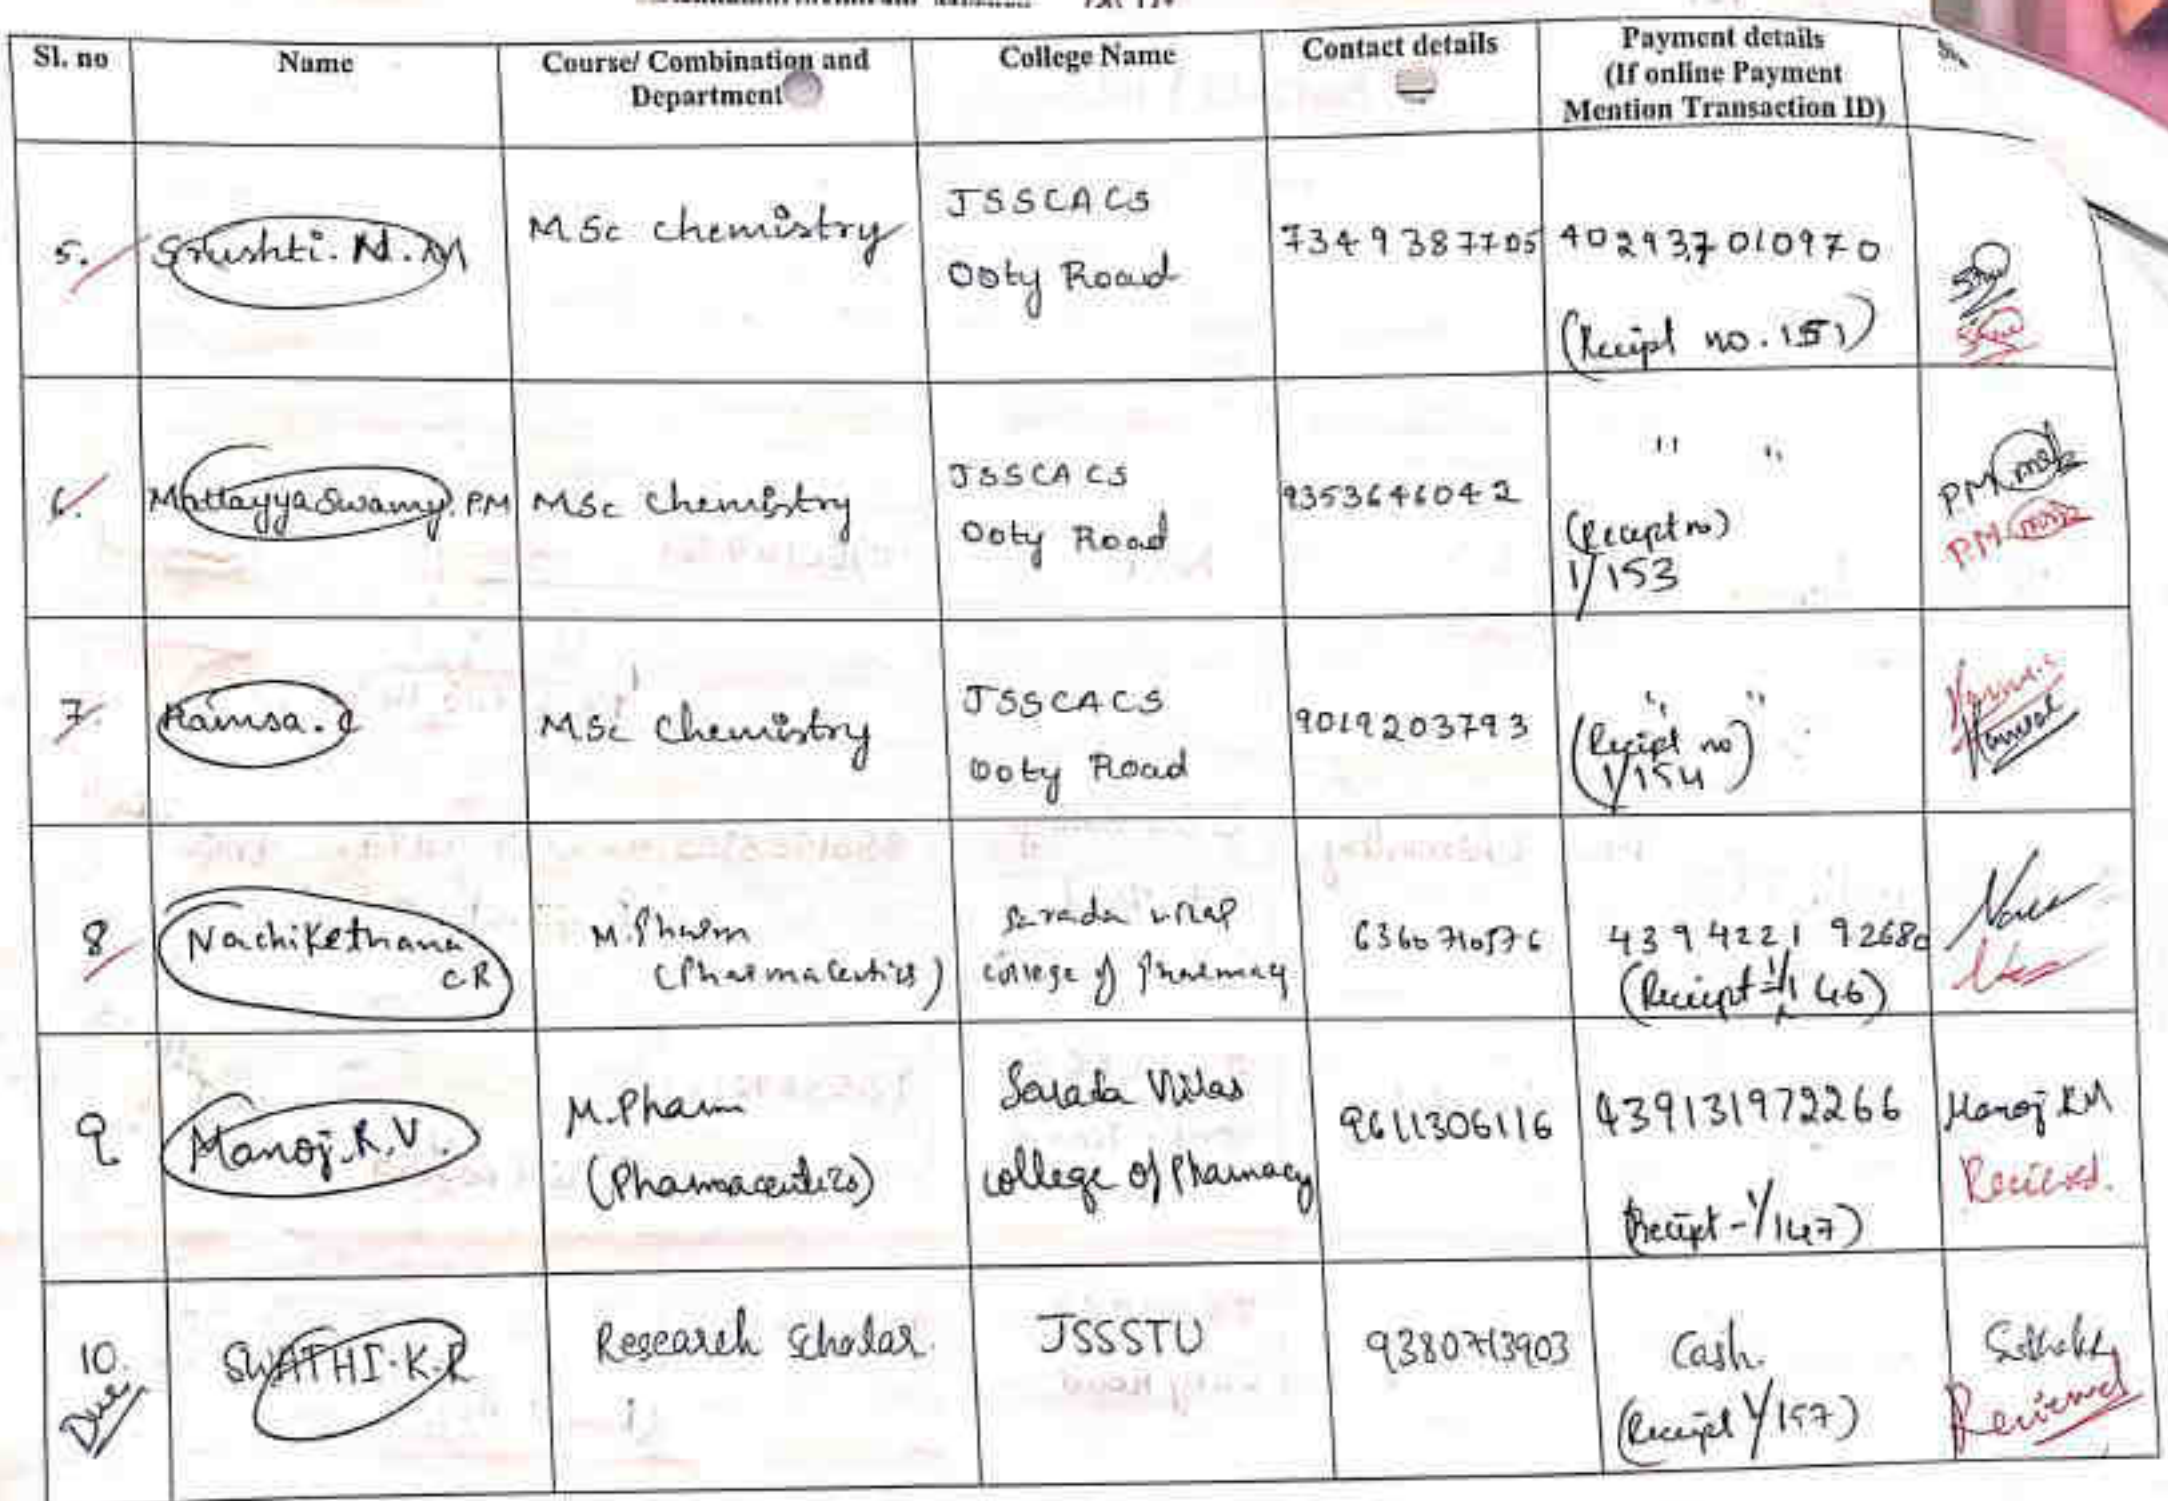 Sl. no
Name
Course/ Combination and
Department
College Name
Contact details
Payment details
(If online Payment
Mention Transaction ID)
5.
Srushti. N. M
MSc chemistry
JSSCACS
Ooty Road
7349387705
402937010970
(Receipt no. 151)
6.
Mattayya Swamy. P.M
MSc Chemistry
JSSCACS
Ooty Road
9353646042
" "
(Receipt no)
1/153
P.M
P.M
7.
Hamsa. C
MSc Chemistry
JSSCACS
Ooty Road
9019203793
" "
(Receipt no)
1/154
8
Nachikethana
C R
M.Pharm
(Pharmaceutics)
Sarada vilas
college of Pharmacy
6360710576
(Receipt 1/146)
9
Manoj. R. V.
M.Pharm
(Pharmaceutics)
Sarada Vilas
college of Pharmacy
9611306116
439131972266
(Receipt - 1/147)
Manoj RM
Recieved.
10.
Due
SWATHI. K. R
Research Scholar.
JSSSTU
9380713903
Cash.
(Receipt 1/157)